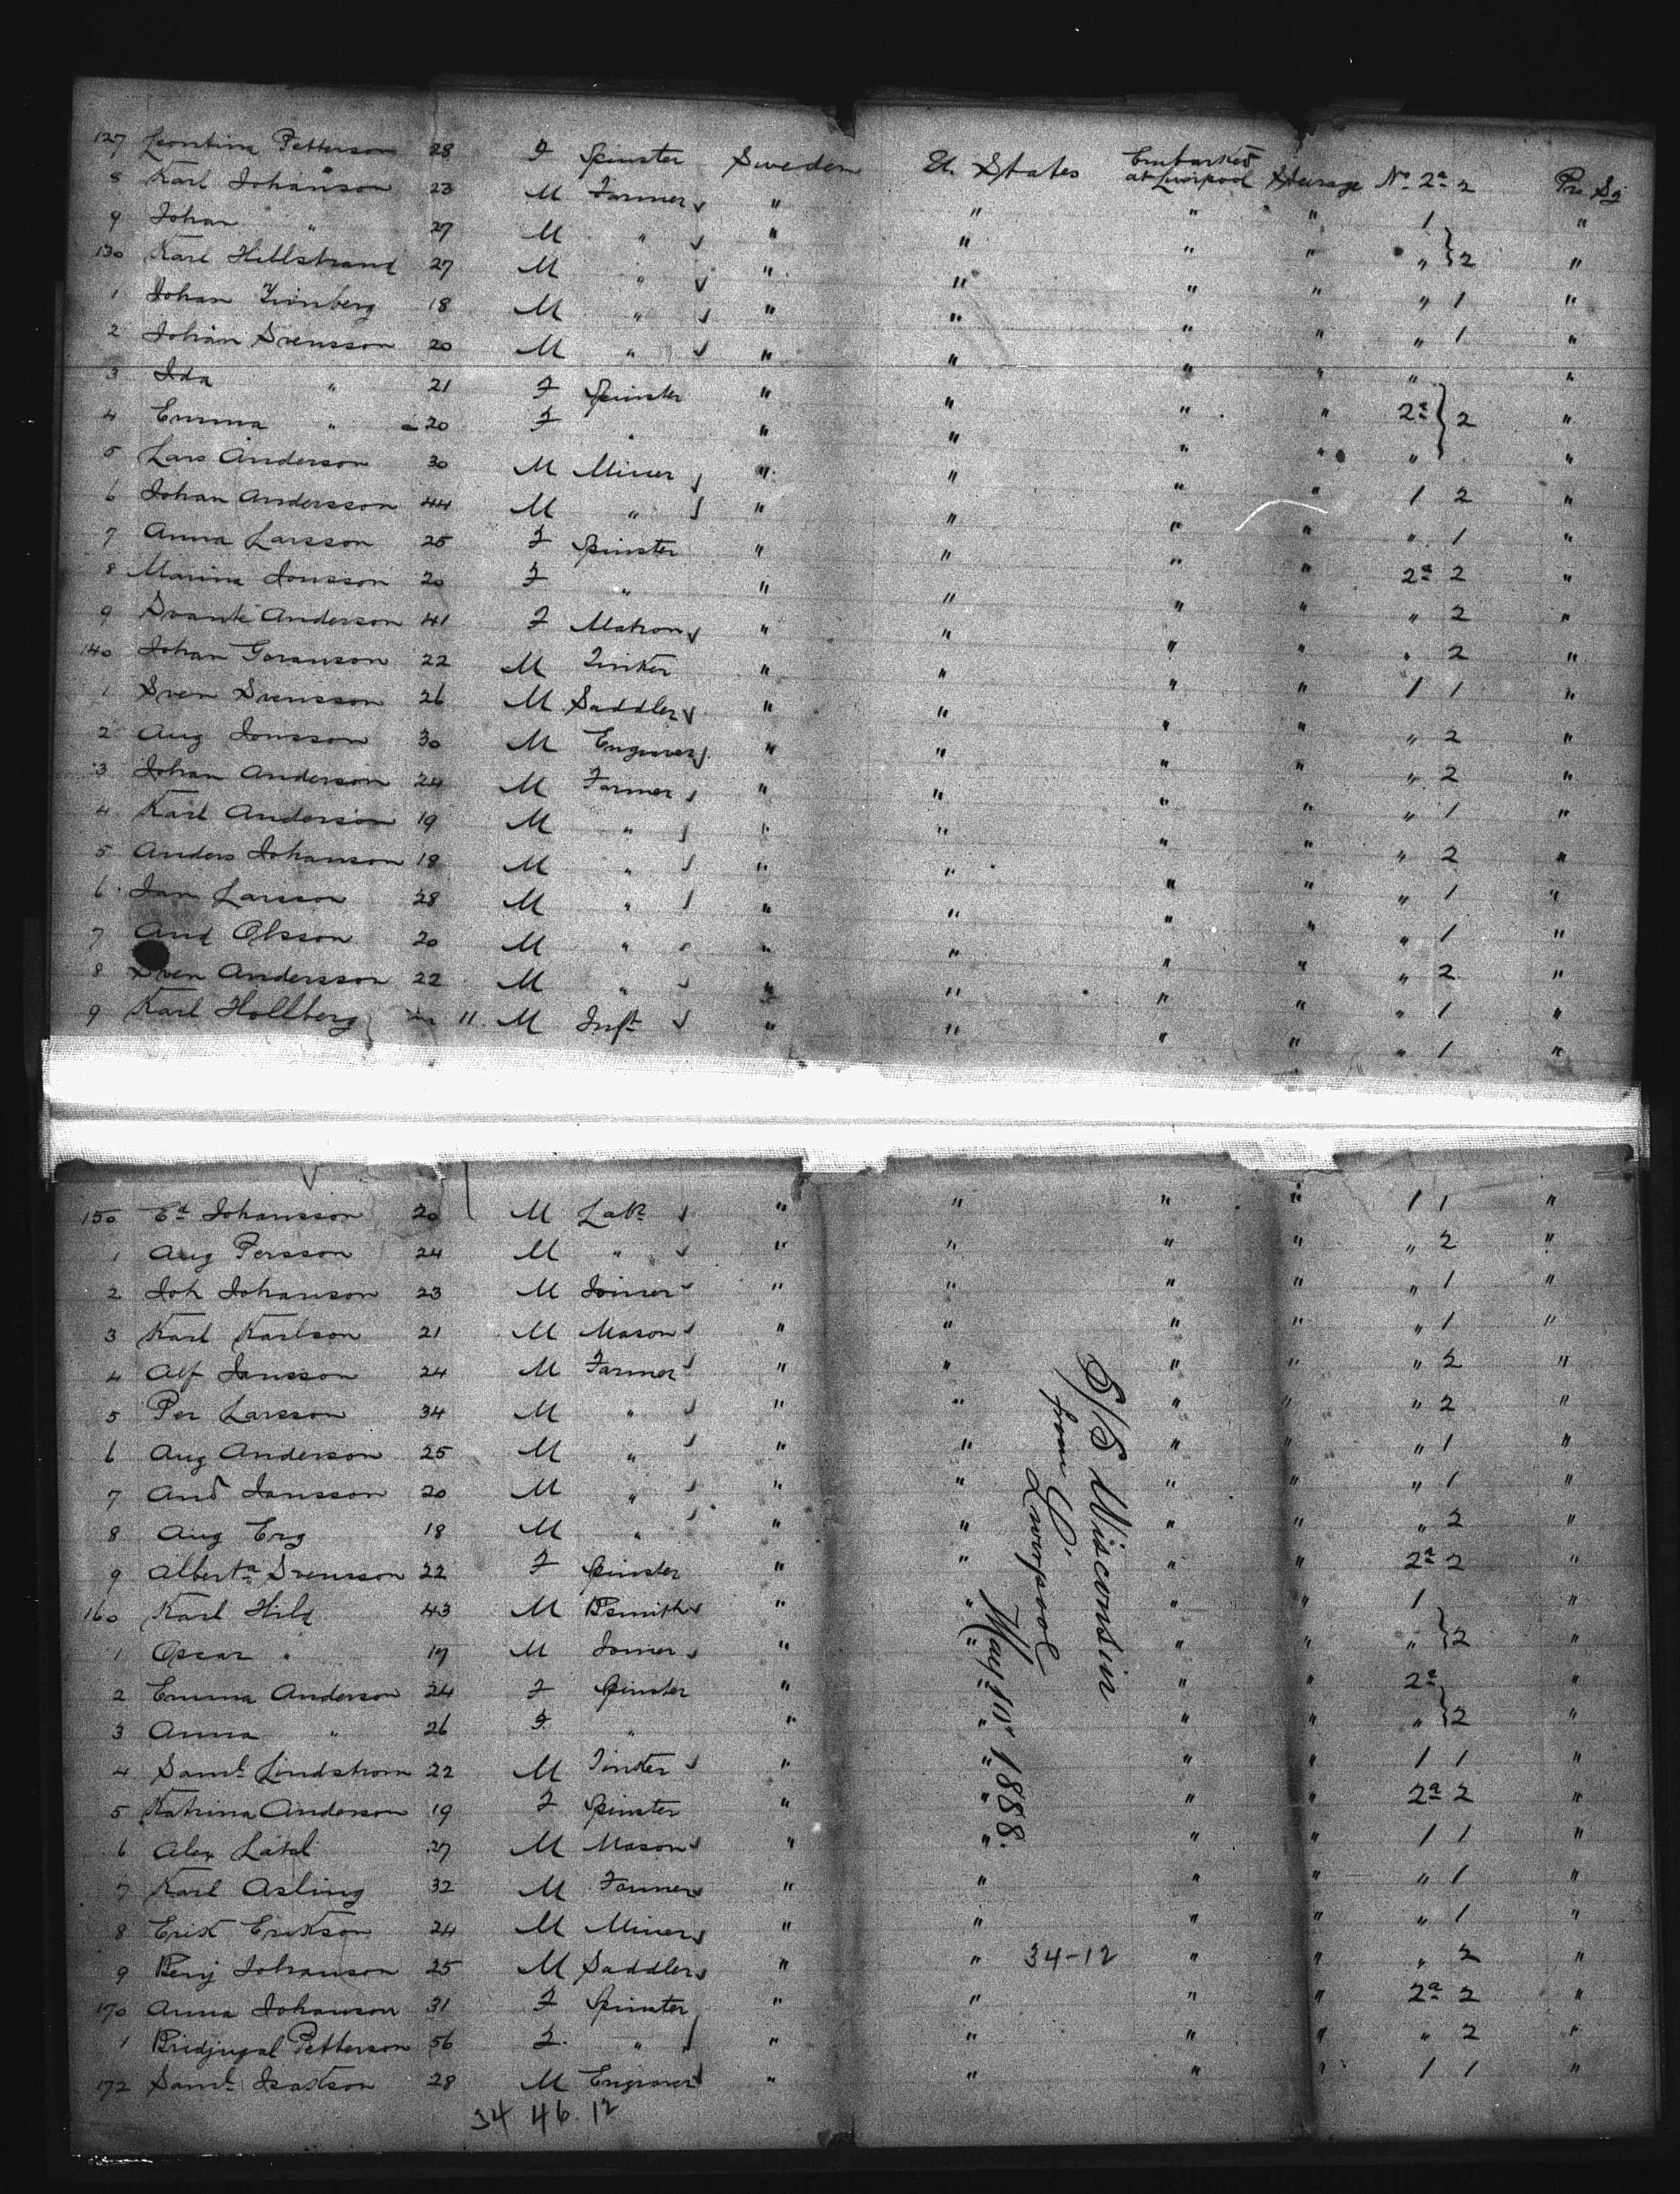 127 Leontina Petterson 28 F Spinster Sweden U. States Embarked at Liverpool Steerage No 2a 2 Pro Sg
8 Karl Johanson 23 M Farmer " " " " 1 "
9 Johan " 27 M " " " " " " } 2 "
130 Karl Hellstrand 27 M " " " " " " 1 "
1 Johan 18 M " " " " " " 1 "
2 Johan Svensson 20 M " " " " " " "
3 Ida " 21 F Spinster " " " " 2a } 2 "
4 Emma " 20 F " " " " " " "
5 Lars Anderson 30 M Miner " " " " 1 2 "
6 Johan Andersson 44 M " " " " " " 1 "
7 Anna Larsson 25 F Spinster " " " " 2a 2 "
8 Marina Jonsson 20 F " " " " " " 2 "
9 Svante Anderson 41 F Matron " " " " " 2 "
140 Johan Goranson 22 M Tinker " " " " 1 1 "
1 Sven Svensson 26 M Saddler " " " " " 2 "
2 Aug Jonsson 30 M Engraver " " " " " 2 "
3 Johan Anderson 24 M Farmer " " " " " 1 "
4 Karl Anderson 19 M " " " " " " 2 "
5 Anders Johanson 18 M " " " " " " 1 "
6 Jan Larsson 28 M " " " " " " 1 "
7 And Olsson 20 M " " " " " " 2 "
8 Sven Andersson 22 M " " " " " " 1 "
9 Karl Hollberg 11 M Inft " " " " " 1 "
150 Ed Johansson 20 M Labr " " " " 1 1 "
1 Aug Persson 24 M " " " " " " 2 "
2 Joh Johanson 23 M Joiner " " " " " 1 "
3 Karl Karlson 21 M Mason " " " " " 1 "
4 Alf Jansson 24 M Farmer " " " " " 2 "
5 Per Larsson 34 M " " " " " " 2 "
6 Aug Anderson 25 M " " " " " " 1 "
7 And Jansson 20 M " " " " " " 1 "
8 Aug Erg 18 M " " " " " " 2 "
9 Alberta Svensson 22 F Spinster " " " " 2a 2 "
160 Karl Hild 43 M Bsmith " " " " 1 "
1 Oscar " 19 M Joiner " " " " " } 2 "
2 Emma Anderson 24 F Spinster " " " " 2a "
3 Anna " 26 F " " " " " " } 2 "
4 Saml Lindstrom 22 M Tinker " " " " 1 1 "
5 Katrina Anderson 19 F Spinster " " " " 2a 2 "
6 Alex 27 M Mason " " " " 1 1 "
7 Karl Asling 32 M Farmer " " " " " 1 "
8 Erik Erikson 24 M Miner " " " " " 1 "
9 Benj Johanson 25 M Saddler " " 34-12 " " " 2 "
170 Anna Johanson 31 F Spinster " " " " 2a 2 "
1 Petterson 56 F " " " " " " 2 "
172 Saml Isakson 28 M Engraver " " " " 1 1 "
34 46 12
S/S Wisconsin
from Liverpool
May 10 1888.